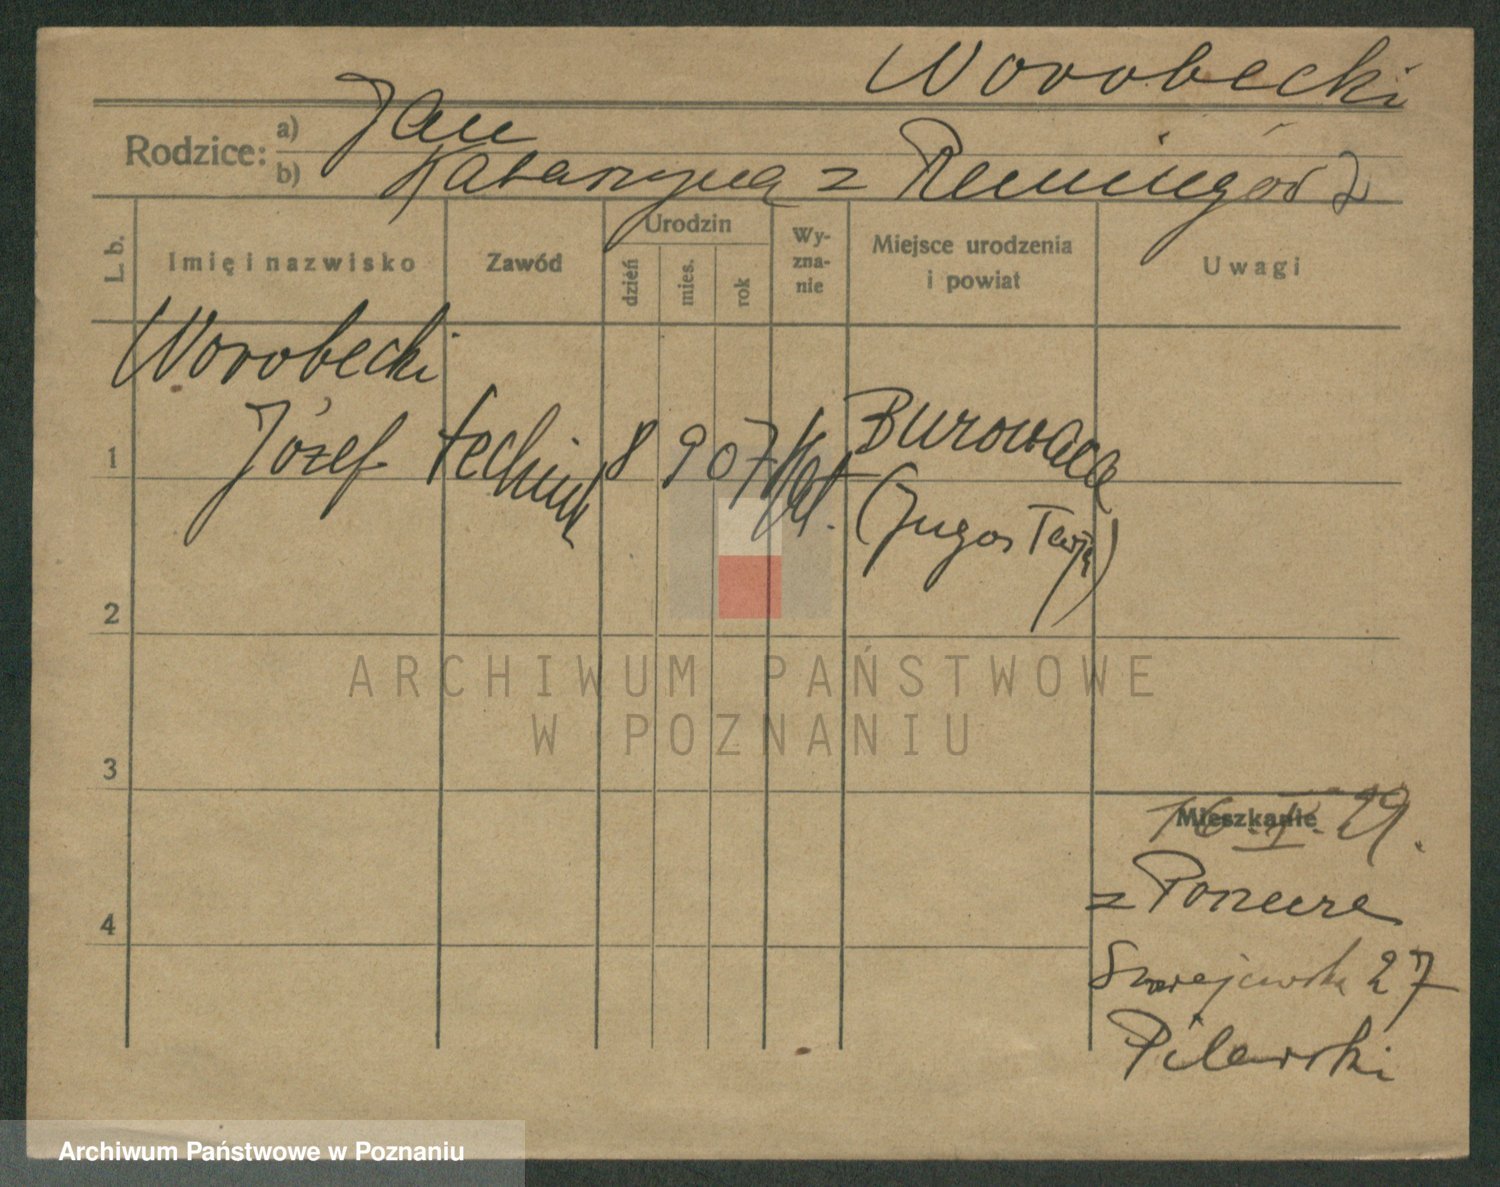 Worobecki
Rodzice: a) Jan
b) Katarzyna z Remingów
L. b.
Imię i nazwisko
Zawód
Urodzin
dzień
mies.
rok
Wy-
zna-
nie
Miejsce urodzenia
i powiat
Uwagi
Worobecki
1 Józef technik 8 9 07 kat. Burowaca
(Jugosławja)
2
3
4
Mieszkanie
16. I. 29.
z Ponure
27
Pilawski
ARCHIWUM PAŃSTWOWE
W POZNANIU
Archiwum Państwowe w Poznaniu